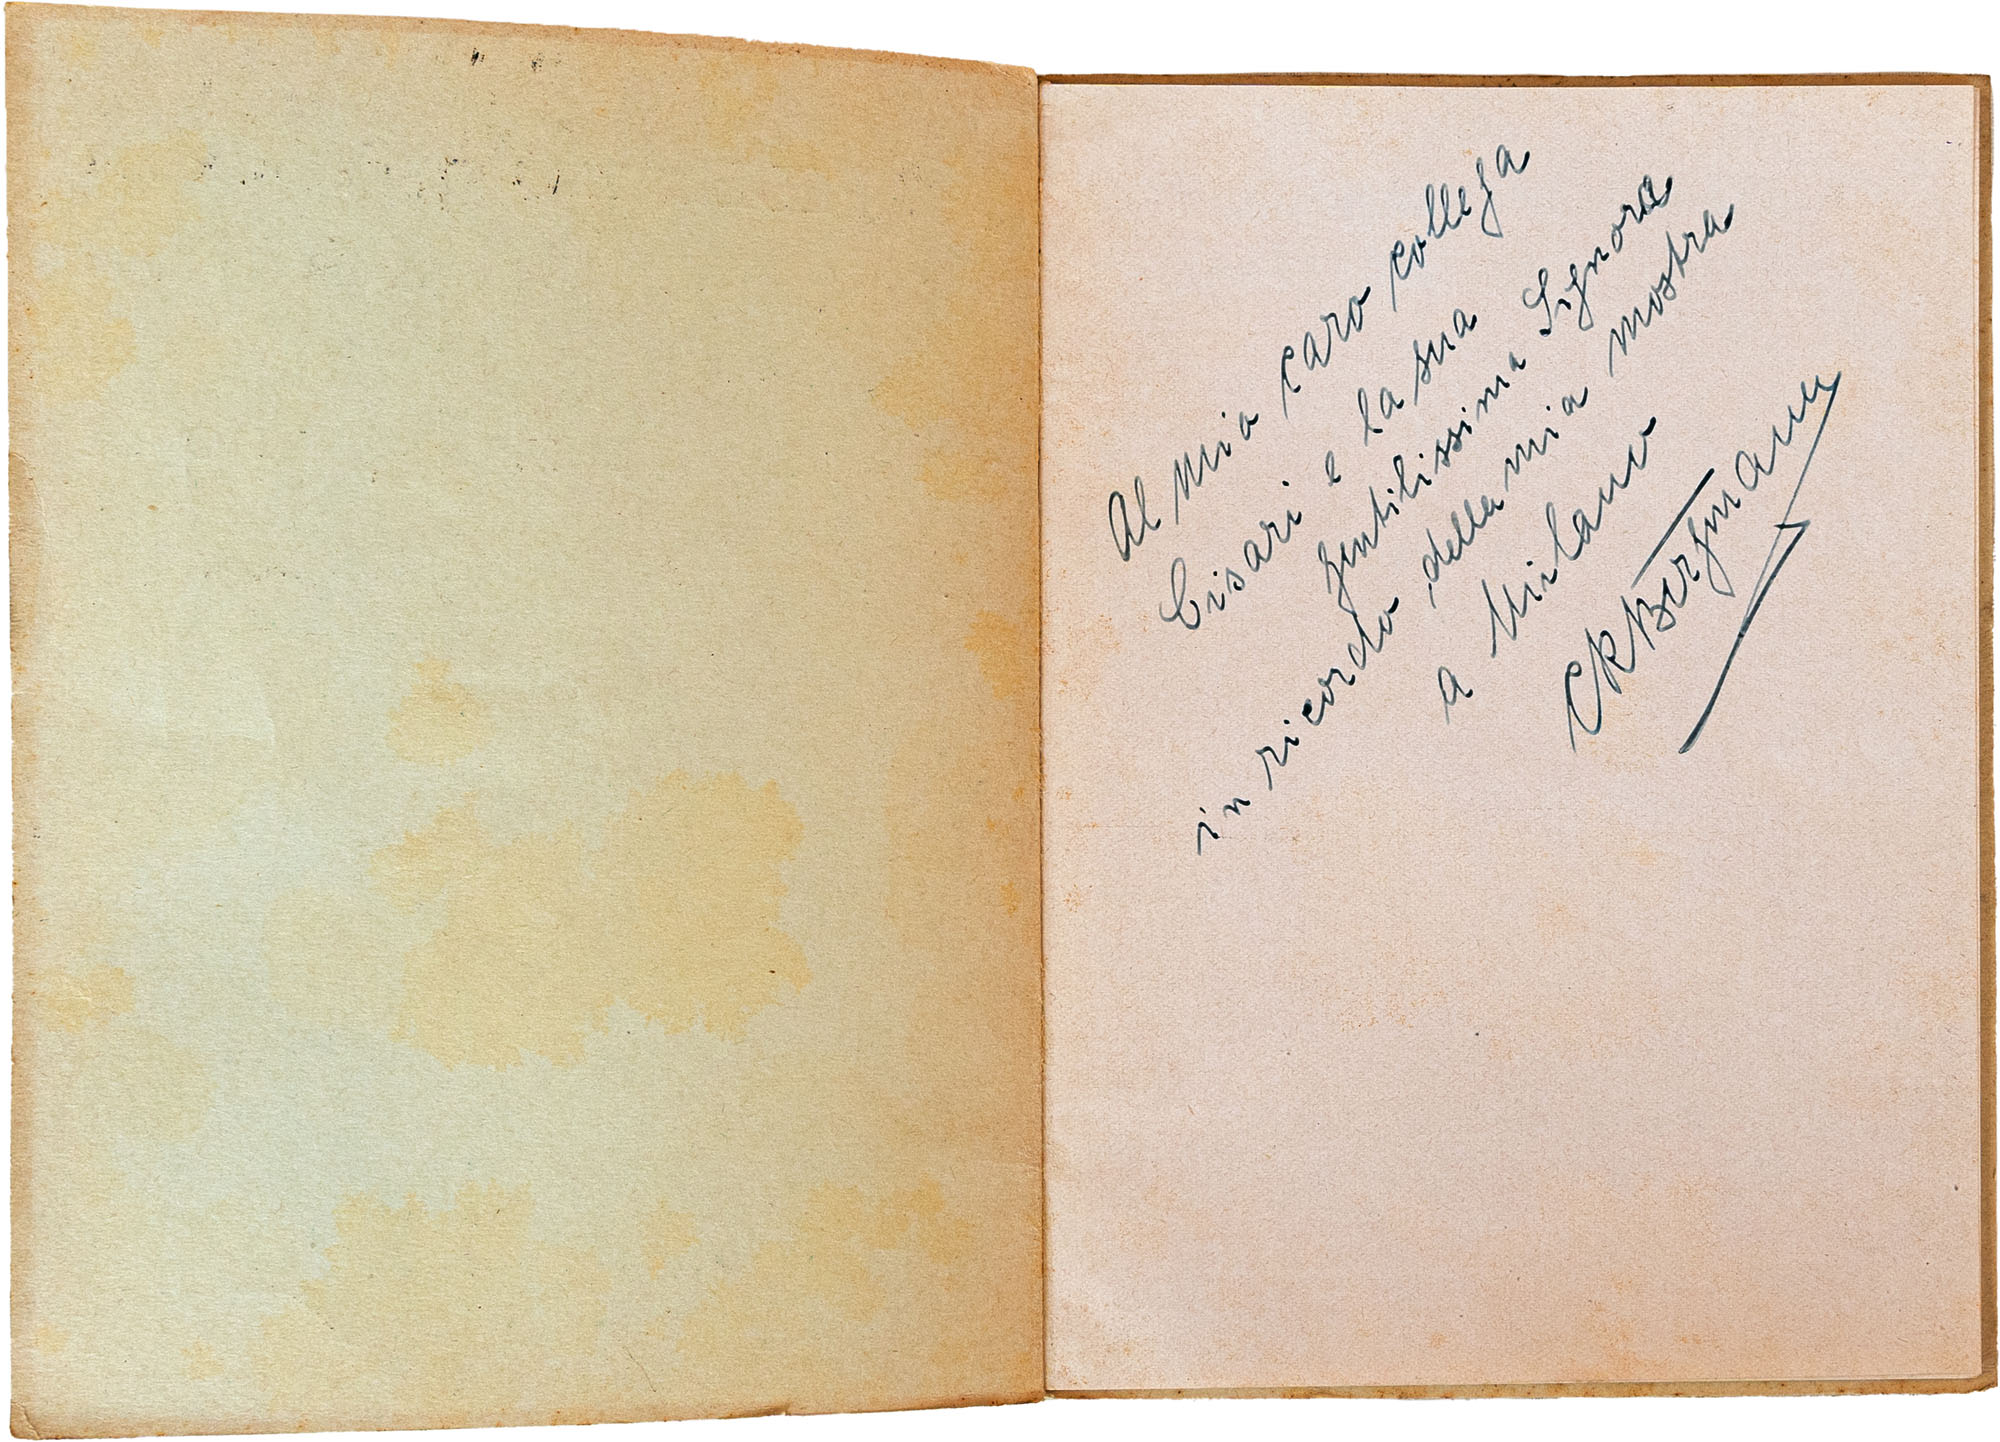 Al mio caro collega
Cisari e la sua
gentilissima Signora
in ricordo della mia mostra
a Milano
CKBergmann